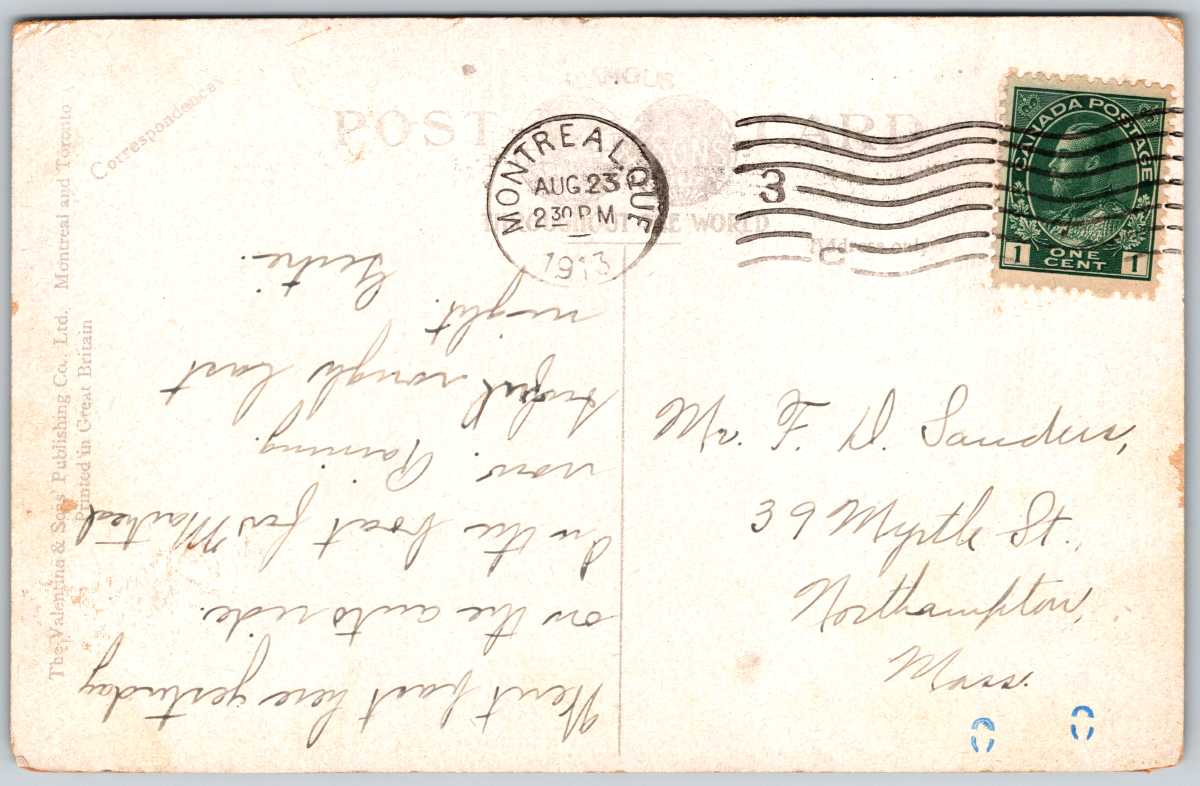 The Valentine & Sons' Publishing Co., Ltd. Montreal and Toronto
Printed in Great Britain
Correspondence
FAMOUS
POST CARD
THROUGHOUT THE WORLD
Address only
MONTREAL, QUE
AUG 23
2 30 PM
1913
3
C
CANADA POSTAGE
1 ONE CENT 1
Went past here yesterday
on the auto ride.
On the boat for Montreal
now. Raining.
rough last
night.
Mr. F. D. Sanders,
39 Myrtle St.,
Northampton,
Mass.